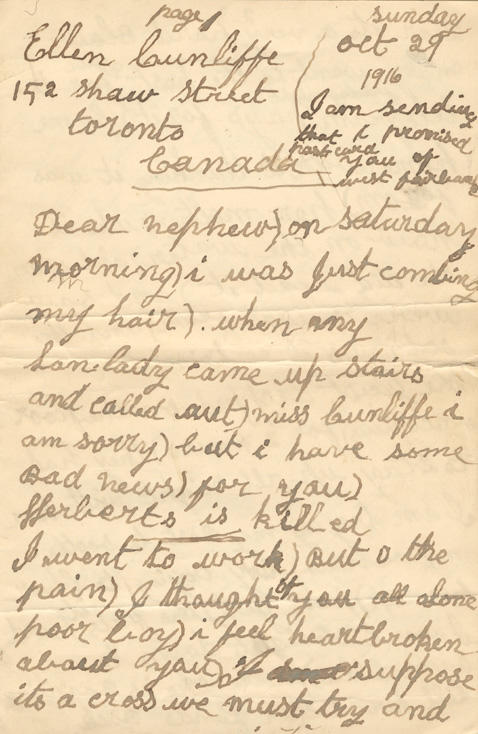 page 1
sunday
Oct 29
1916
Ellen Cunliffe
152 shaw street
toronto
Canada
I am sending
that i promised
postcard you of
west fairbank
Dear nephew) on Saturday
morning) i was Just combing
my hair). when my
Lan-lady came up stairs
and called out) miss Cunliffe i
am sorry) but i have some
Bad news) for you)
Herberts is killed
I went to work) But o the
pain) I thought of you all alone
poor boy) i feel heartbroken
about you) I suppose
its a cross we must try and